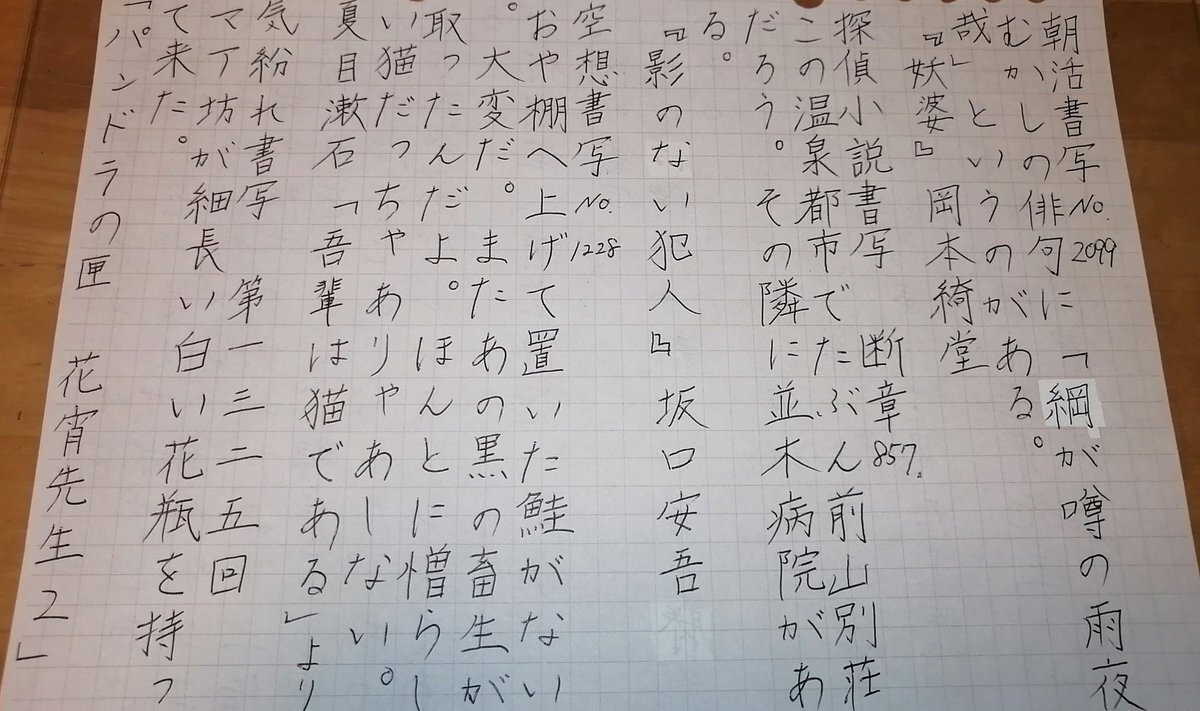 朝活書写No.2099
むかしの俳句に「綱が噂の雨夜
哉」というのがある。
『妖婆』 岡本綺堂
探偵小説書写 断章857.
この温泉都市でたぶん前山別荘
だろう。その隣に並木病院があ
る。
『影のない犯人』 坂口安吾
空想書写No.1228
おや棚へ上げて置いた鮭がない
。大変だ。またあの黒の畜生が
取ったんだよ。ほんとに憎らし
い猫だっちゃありゃあしない。
夏目漱石「吾輩は猫である」より
気紛れ書写 第一三二五回
マア坊が細長い白い花瓶を持っ
て来た。
「パンドラの匣 花宵先生2」